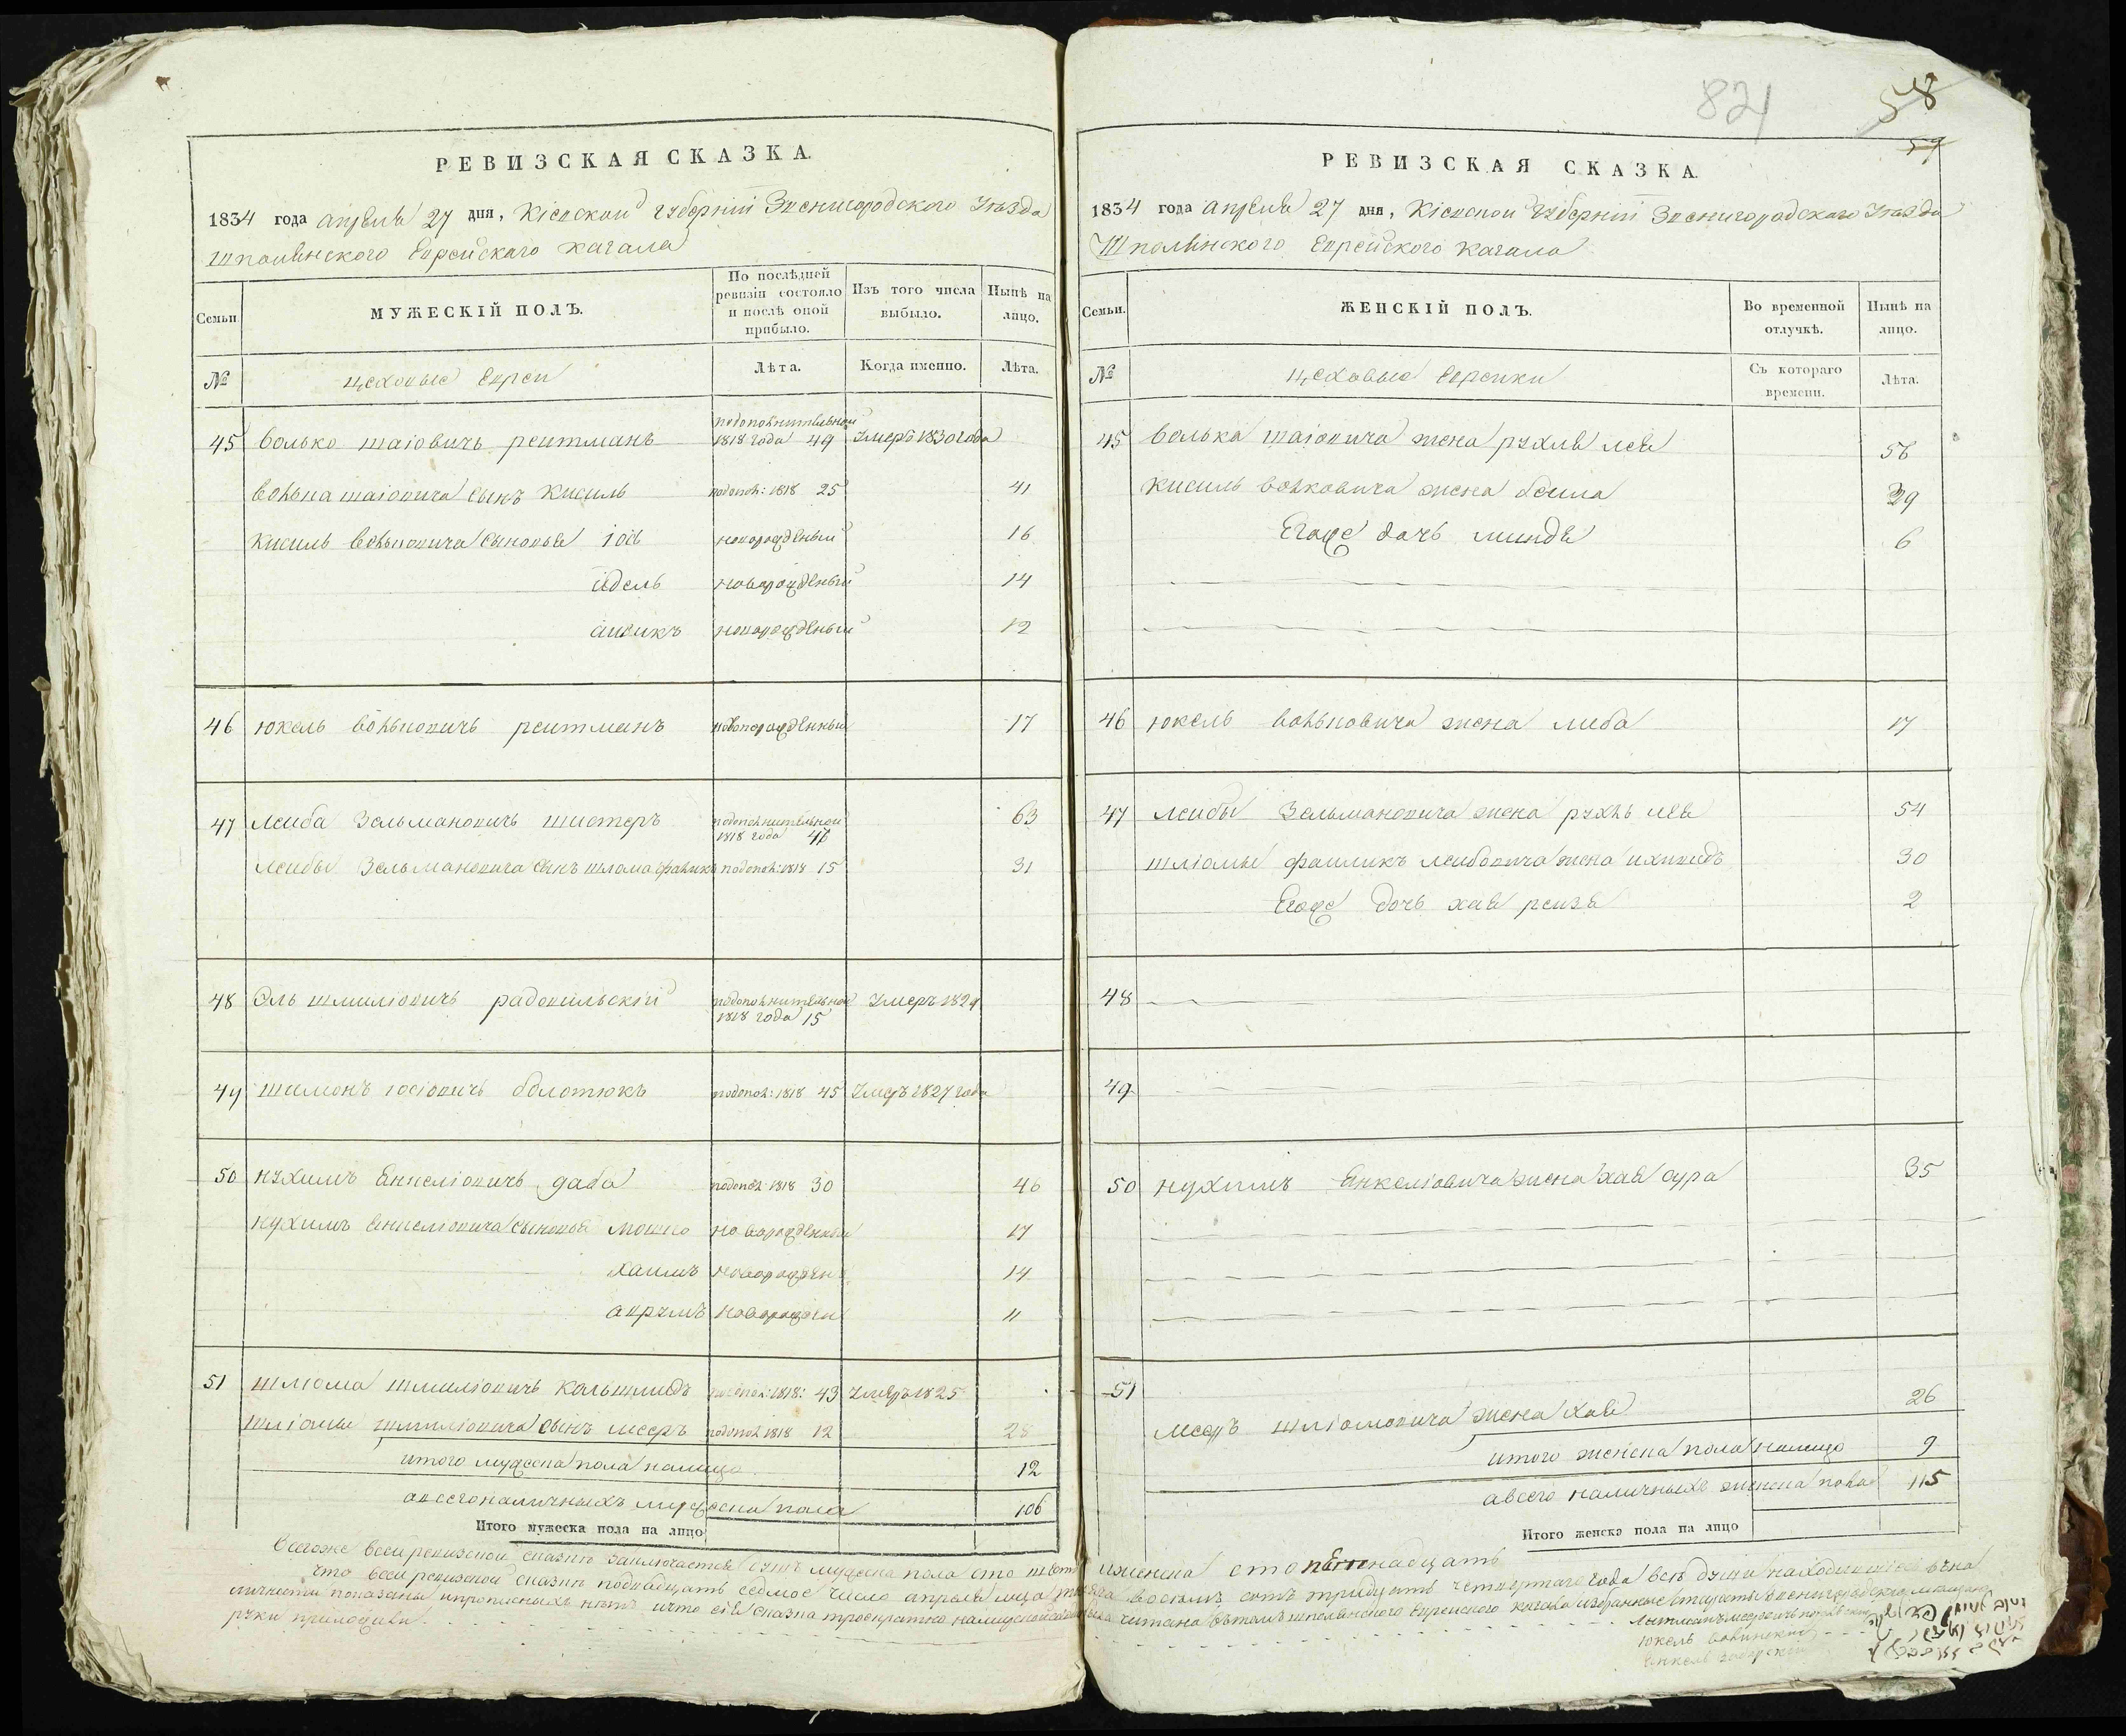 821
58
59
РЕВИЗСКАЯ СКАЗКА.
1834 года апреля 27 дня, Кіевской губерніи Звенигородского Уезда
Шполянского Еврейского кагала
Семьи.
МУЖЕСКІЙ ПОЛЪ.
По послѣдней ревизіи состояло и послѣ оной прибыло.
Изъ того числа выбыло.
Нынѣ на лицо.
№
цеховые Евреи
Лѣта.
Когда именно.
Лѣта.
45 Волько шаіовичь рейтманъ подополнительной 1818 года 49 Умеръ 1830 года
Волька шаіовича сынъ Кисиль подопол: 1818 25 41
Кисиль Волковича сыновья Іось новорожденный 16
идель новорожденный 14
аизикъ новорожденный 12
46 юкель Вольковичь рейтманъ новорожденный 17
47 Лейба Зельмановичь шистеръ подополнительной 1818 года 47 63
Лейбы Зельмановича сынъ шлома файликъ подопол: 1818 15 31
48 Эль шмиліовичь радовильскій подополнительной 1818 года 15 Умеръ 1829
49 шимонъ іосіовичь болотюкъ подопол: 1818 45 Умеръ 1827 года
50 нухимъ Енкеліовичь даба подопол: 1818 30 46
нухимъ Енкеліовича сыновья мошко новорожденный 17
хаимъ новорожден 14
аврумъ новорожден 11
51 шлиома шмиліовичь кольшмидъ подопол: 1818: 43 Умеръ 1825
шліомы шмиліовича сынъ мееръ подопол 1818 12 28
итого мужеска пола налицо 12
а всего наличныхъ мужеска пола 106
Итого мужеска пола на лицо
РЕВИЗСКАЯ СКАЗКА.
1834 года апреля 27 дня, Кіевской губерніи Звенигородского Уезда
Шполянского Еврейского кагала
Семьи.
ЖЕНСКІЙ ПОЛЪ.
Во временной отлучкѣ.
Нынѣ на лицо.
№
цеховые Еврейки
Съ котораго времени.
Лѣта.
45 Волька шаіовича жена рухля лея 56
Кисиль Волковича жена бейла 39
Егоже дочь миндя 6
46 юкель Вольковича жена либа 17
47 Лейбы Зельмановича жена рухль лея 54
шліомы файликъ лейбовича жена 30
Егоже дочь хая рейзя 2
48
49
50 нухимъ Енкеліовича жена хая сура 35
51
мееръ шліомовича жена хая 26
итого женска пола налицо 9
а всего наличныхъ женска пола 115
Итого женска пола на лицо
Всегоже всей ревизской сказки заключается душъ мужеска пола сто шесть и женска сто пятнадцать
что всей ревизской сказки подвадцать седмое число апреля тысяча восемь сотъ тридцать четвертаго года все души находившіеся
личности показаны и прописныхъ нетъ и что сія сказка троекратно читана Шполянского Еврейского кагала избранные
руки приложили
юкель
Енкель